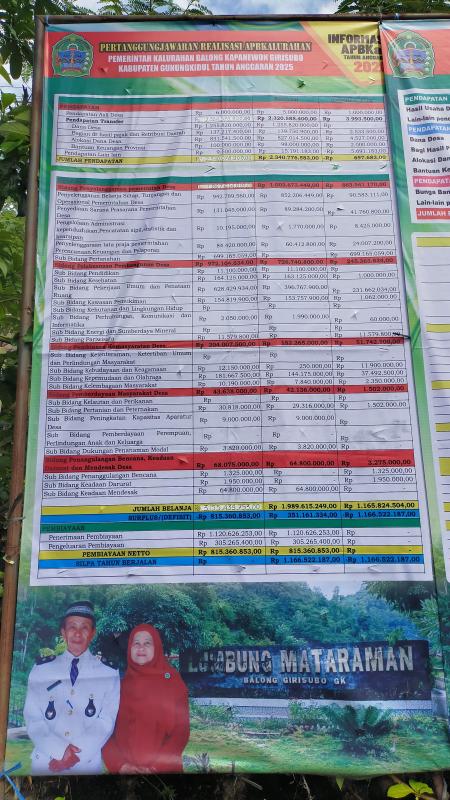 PERTANGGUNGJAWABAN REALISASI APBKALURAHAN
PEMERINTAH KALURAHAN BALONG KAPANEWON GIRISUBO
KABUPATEN GUNUNGKIDUL TAHUN ANGGARAN 2025
PENDAPATAN
Pendapatan Asli Desa Rp 6.000.000,00 Rp 5.000.000,00 Rp 1.000.000,00
Pendapatan Transfer Rp 2.320.585.400,00 Rp 3.993.500,00
Dana Desa
Bagian dr hasil pajak dan Retribusi Daerah
Alokasi Dana Desa
Bantuan Keuangan Provinsi Rp 100.000.000,00 Rp 98.000.000,00 Rp 2.000.000,00
Pendapatan Lain lain
JUMLAH PENDAPATAN Rp 2.340.776.553,00 Rp 697.683,00
Bidang Penyelenggaraan pemerintah Desa
Penyelenggaran Belanja Siltap, Tunjangan dan
Operasional Pemerintahan Desa Rp 942.789.560,00 Rp 852.206.449,00 Rp 90.583.111,00
Penyediaan Sarana Prasarana Pemerintahan
Desa Rp 131.045.000,00 Rp 89.284.200,00 Rp 41.760.800,00
Pengelolaan Administrasi
kependudukan,Pencatatan sipil,statistik dan
kearsipan Rp 10.195.000,00 Rp 1.770.000,00 Rp 8.425.000,00
Penyelenggaraan tata praja pemerintahan
Perencanaan,Keuangan dan Pelaporan Rp 84.420.000,00 Rp 60.412.800,00 Rp 24.007.200,00
Sub Bidang Pertanahan Rp 699.165.059,00 Rp - Rp 699.165.059,00
Bidang Pelaksanaan Pembangunan Desa Rp 972.104.834,00 Rp 726.740.800,00 Rp 245.364.034,00
Sub Bidang Pendidikan Rp 11.100.000,00 Rp 11.100.000,00 Rp -
Sub Bidang Kesehatan Rp 164.125.000,00 Rp 163.125.000,00 Rp 1.000.000,00
Sub Bidang Pekerjaan Umum dan Penataan
Ruang Rp 628.429.934,00 Rp 396.767.900,00 Rp 231.662.034,00
Sub Bidang Kawasan Permukiman Rp 154.819.900,00 Rp 153.757.900,00 Rp 1.062.000,00
Sub Bidang Kehutanan dan Lingkungan Hidup Rp - Rp - Rp -
Sub Bidang Perhubungan, Komunikasi dan
Informatika Rp 2.050.000,00 Rp 1.990.000,00 Rp 60.000,00
Sub Bidang Energi dan Sumberdaya Mineral Rp - Rp - Rp -
Sub Bidang Pariwisata Rp 11.579.800,00 Rp - Rp 11.579.800,00
Rp 204.007.500,00 Rp 152.265.000,00 Rp 51.742.500,00
Sub Bidang Ketenteraman, Ketertiban Umum
dan Perlindungan Masyarakat Rp - Rp - Rp -
Sub Bidang Kebudayaan dan Keagamaan Rp 12.150.000,00 Rp 250.000,00 Rp 11.900.000,00
Sub Bidang Kepemudaan dan Olahraga Rp 181.667.500,00 Rp 144.175.000,00 Rp 37.492.500,00
Sub Bidang Kelembagaan Masyarakat Rp 10.190.000,00 Rp 7.840.000,00 Rp 2.350.000,00
Bidang Pemberdayaan Masyarakat Desa Rp 43.638.000,00 Rp 42.136.000,00 Rp 1.502.000,00
Sub Bidang Kelautan dan Perikanan Rp - Rp - Rp -
Sub Bidang Pertanian dan Peternakan Rp 30.818.000,00 Rp 29.316.000,00 Rp 1.502.000,00
Sub Bidang Peningkatan Kapasitas Aparatur
Desa Rp 9.000.000,00 Rp 9.000.000,00 Rp -
Sub Bidang Pemberdayaan Perempuan,
Perlindungan Anak dan Keluarga Rp - Rp - Rp -
Sub Bidang Dukungan Penanaman Modal Rp 3.820.000,00 Rp 3.820.000,00 Rp -
Bidang Penanggulangan Bencana, Keadaan
Darurat dan Mendesak Desa Rp 68.075.000,00 Rp 64.800.000,00 Rp 3.275.000,00
Sub Bidang Penanggulangan Bencana Rp 1.325.000,00 Rp - Rp 1.325.000,00
Sub Bidang Keadaan Darurat Rp 1.950.000,00 Rp - Rp 1.950.000,00
Sub Bidang Keadaan Mendesak Rp 64.800.000,00 Rp 64.800.000,00 Rp -
JUMLAH BELANJA Rp 1.989.615.249,00 Rp 1.165.824.504,00
SURPLUS/(DEFISIT) -Rp 815.360.853,00 Rp 351.161.334,00 -Rp 1.166.522.187,00
PEMBIAYAAN
Penerimaan Pembiayaan Rp 1.120.626.253,00 Rp 1.120.626.253,00 Rp -
Pengeluaran Pembiayaan Rp 305.265.400,00 Rp 305.265.400,00 Rp -
PEMBIAYAAN NETTO Rp 815.360.853,00 Rp 815.360.853,00 Rp -
SILPA TAHUN BERJALAN Rp - Rp 1.166.522.187,00 -Rp 1.166.522.187,00
MATARAMAN
BALONG GIRISUBO GK
INFORMASI
TAHUN ANGGARAN
PENDAPATAN
Hasil Usaha
Lain-lain
PENDAPATAN
Dana Desa
Bagi Hasil
Alokasi Dana
Bantuan
PENDAPATAN
Bunga
Lain-lain
JUMLAH